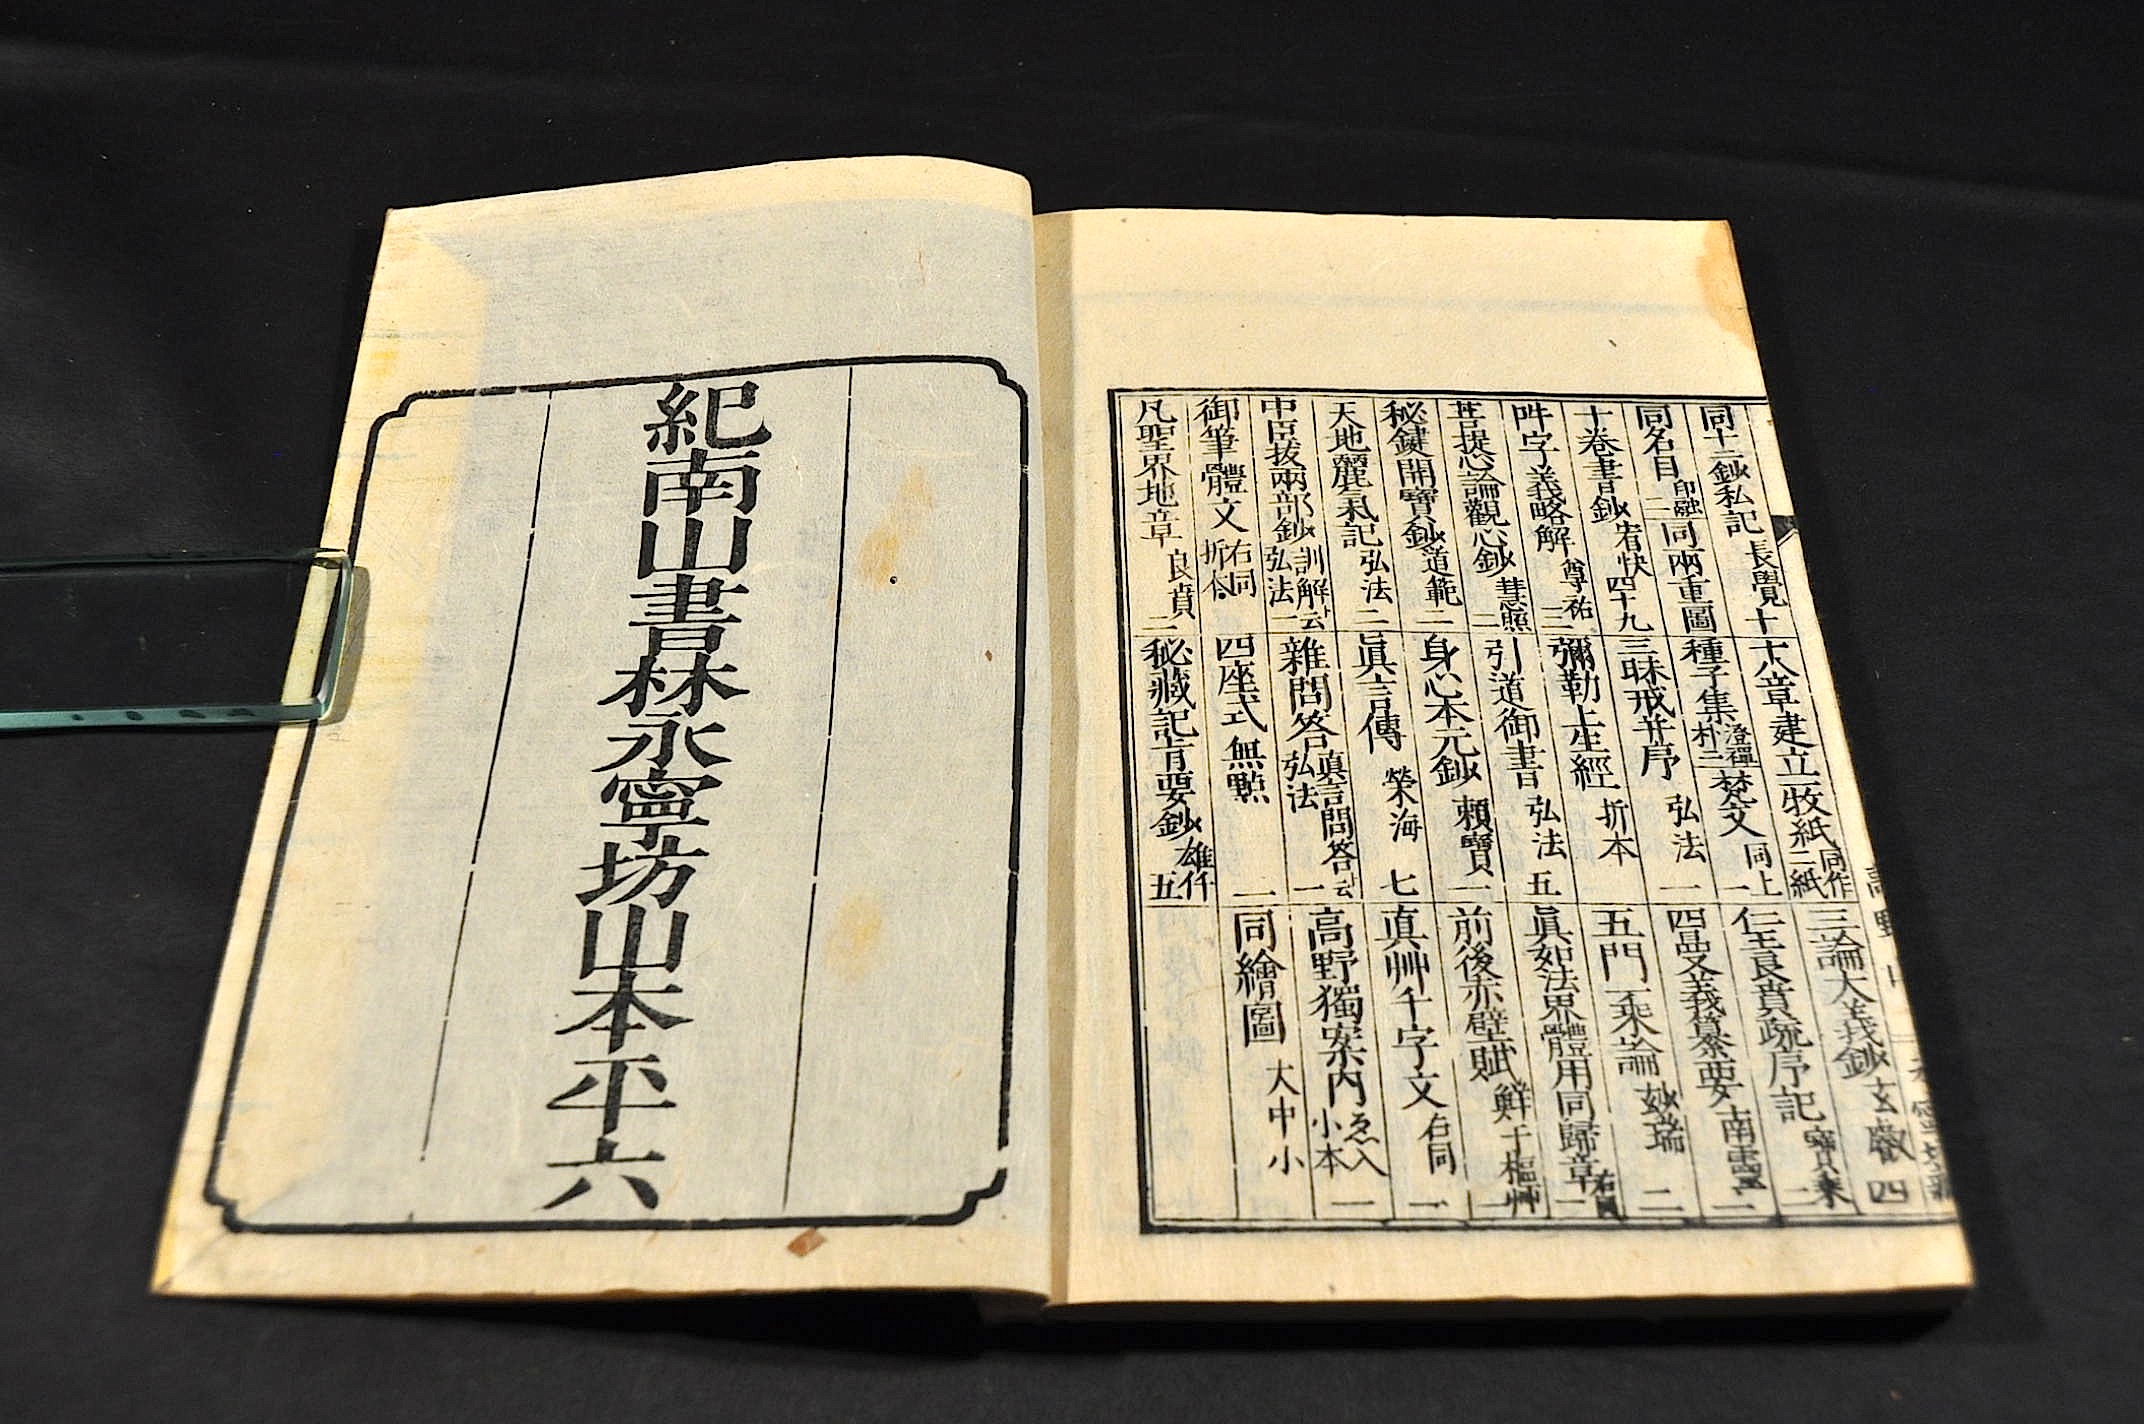 同十二鈔私記 長覺 十
同名目 印融 二 同兩重圖
十卷書鈔 宥快 四十九
吽字義略解 尊祐 三
菩提心論觀心鈔 慧照 二
秘鍵開寶鈔 道範 二
天地麗氣記 弘法 二
中臣祓兩部鈔 訓解 弘法 一
御筆體文 右同 折本
凡聖界地章 良賁 二
十八章建立 牧紙 同作 二紙
種子集 澄禪 朴三 梵文 同上 一
三昧戒并序 弘法 一
彌勒上生經 折本
引道御書 弘法 五
身心本元鈔 賴寶 一
眞言傳 榮海 七
雜問答 眞言問答云 弘法 一
四座式 無點 一
秘藏記肯要鈔 雄仟 五
三論大義鈔 玄叡 四
仁王良賁疏序記 寶乘 二
四曼義纂要 南靈 二
五門一乘論 妙瑞 二
眞如法界體用同歸章 右同 一
前後赤壁賦 鮮于樞艸 一
真艸千字文 右同 一
高野獨案內 ゑ入 小本 一
同繪圖 大中小
紀南山書林永寧坊山本平六